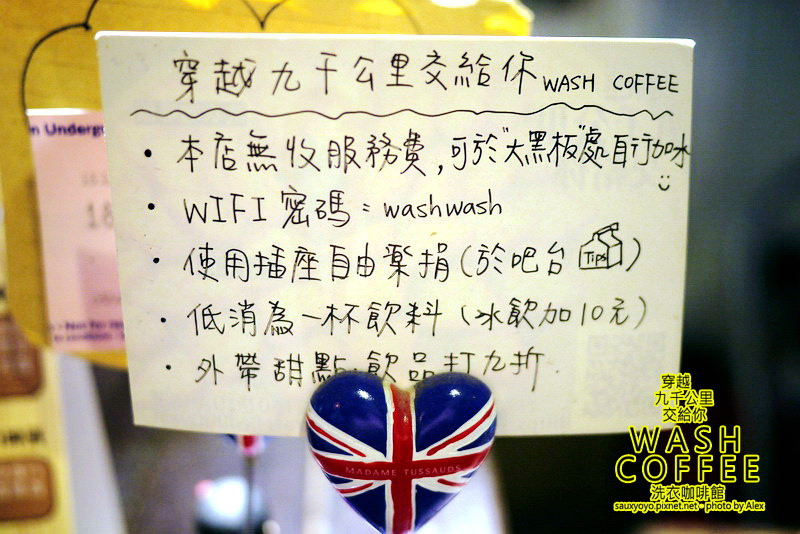 穿越九千公里交給你 WASH COFFEE
• 本店無收服務費,可於"大黑板"處自行加水
• WIFI 密碼:washwash
• 使用插座自由樂捐(於吧台 Tips)
• 低消為一杯飲料(冰飲加10元)
• 外帶甜點.飲品打九折.
MADAME TUSSAUDS
n Underg
18
穿越
九千公里
交給你
WASH
COFFEE
洗衣咖啡館
sauxyoyo.pixnet.net • photo by Alex